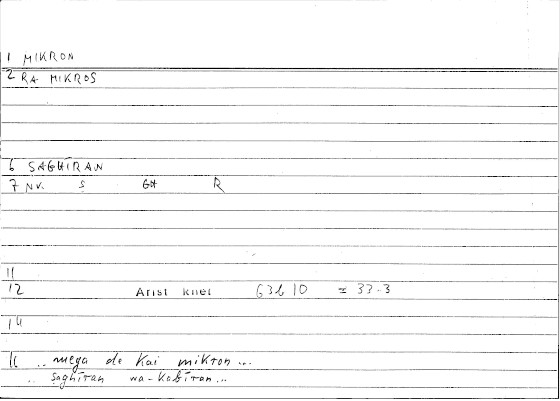 1 MIKRON
2 RA MIKROS
6 SAGHĪRAN
7 NV. S GH R
11
12 Arist Rhet 63b10 = 33.3
14
16 .. mega de kai mikron...
.. saghīran wa-kabīran..